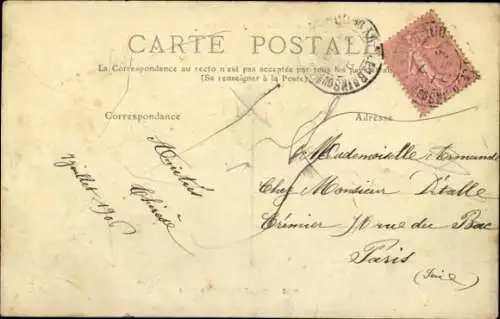 CARTE POSTALE
La Correspondance au recto n'est pas acceptée par tous les pays
(Se renseigner à la Poste)
Correspondance
Adresse
Amitiés
Thérèse
Juillet 1906
Mademoiselle Armande
Chez Monsieur Vitalle
Crémier rue du Bac
Paris
(Seine)